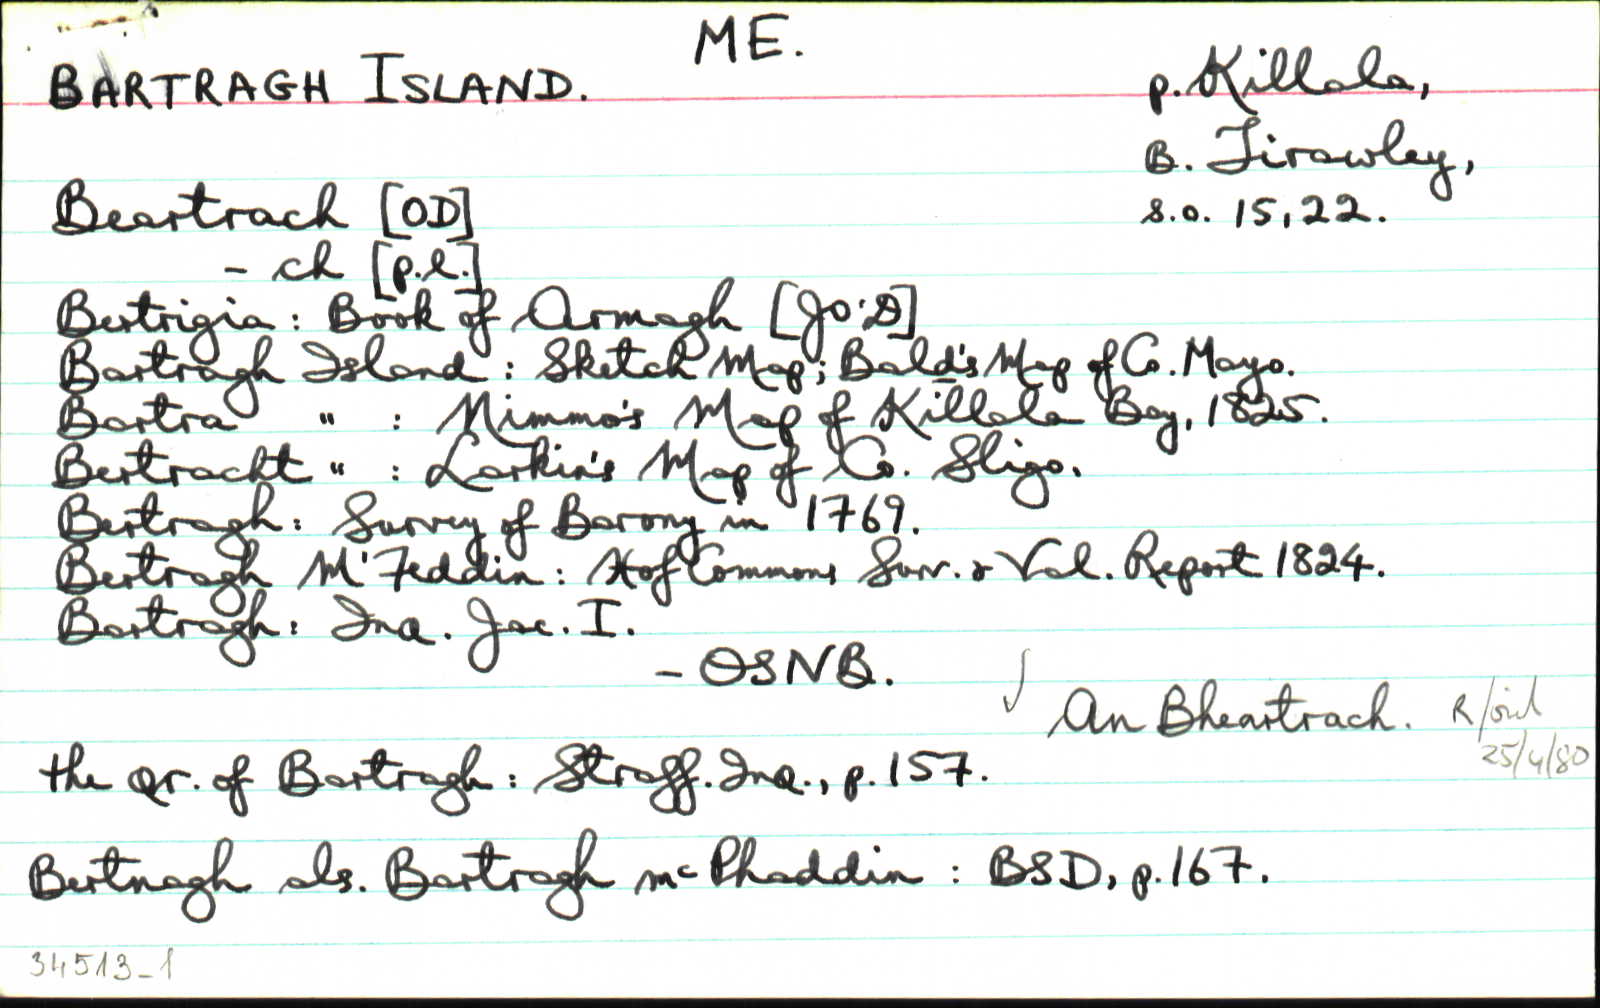 ME.
BARTRAGH ISLAND.
p. Killala,
B. Tirawley,
s.o. 15,22.
Beartrach [OD]
- ch [p.l.]
Bertrigia: Book of Armagh [JO'D]
Bartragh Island: Sketch Map; Bald's Map of Co. Mayo.
Bartra " : Nimmo's Map of Killala Bay, 1825.
Bertracht " : Larkin's Map of Co. Sligo.
Bertragh: Survey of Barony in 1769.
Bertragh M'Feddin: H of Commons Surv. & Val. Report 1824.
Bartragh: Inq. Jac. I.
- OSNB.
An Bheartrach.
25/4/80
the qr. of Bartragh: Straff. Inq., p. 157.
Bertnagh als. Bartragh mc Phaddin: BSD, p. 167.
34513_1